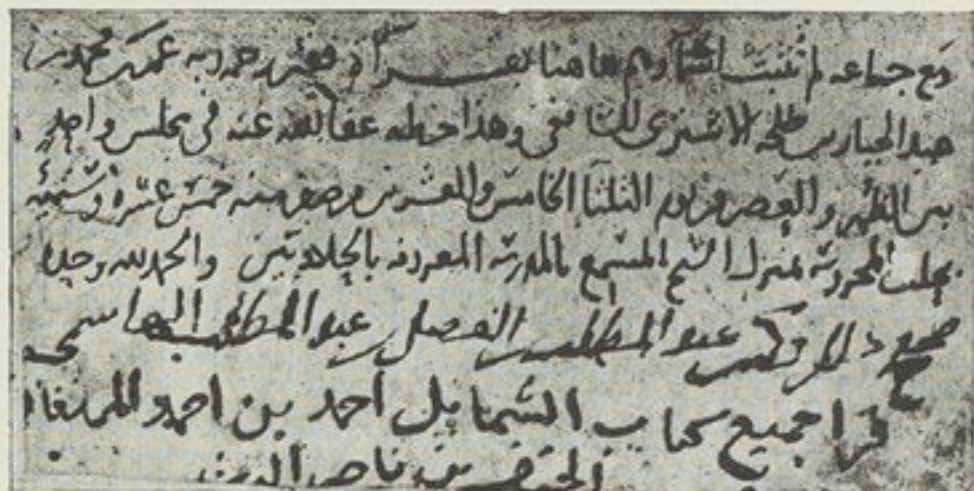 مع جماعة لم تثبت اسماؤهم هاهنا بقراءة فقير رحمة ربه عمر بن محمد بن
عبد الجبار بن طلحة الاشتري الشافعي وهذا خطه عفا الله عنه في مجلس واحد
بين الظهر والعصر من يوم الثلثا الخامس والعشرين من صفر سنة خمس عشرة وستمئة
بحلب المحروسة بمنزل الشيخ المسمع بالمدرسة المعروفة بالحلاويين والحمد لله وحده
صحيح ذلك وكتب عبد المطلب بن الفضل بن عبد المطلب الهاشمي
قرا جميع كتاب الشمايل احمد بن احمد
بن ناصر الدين